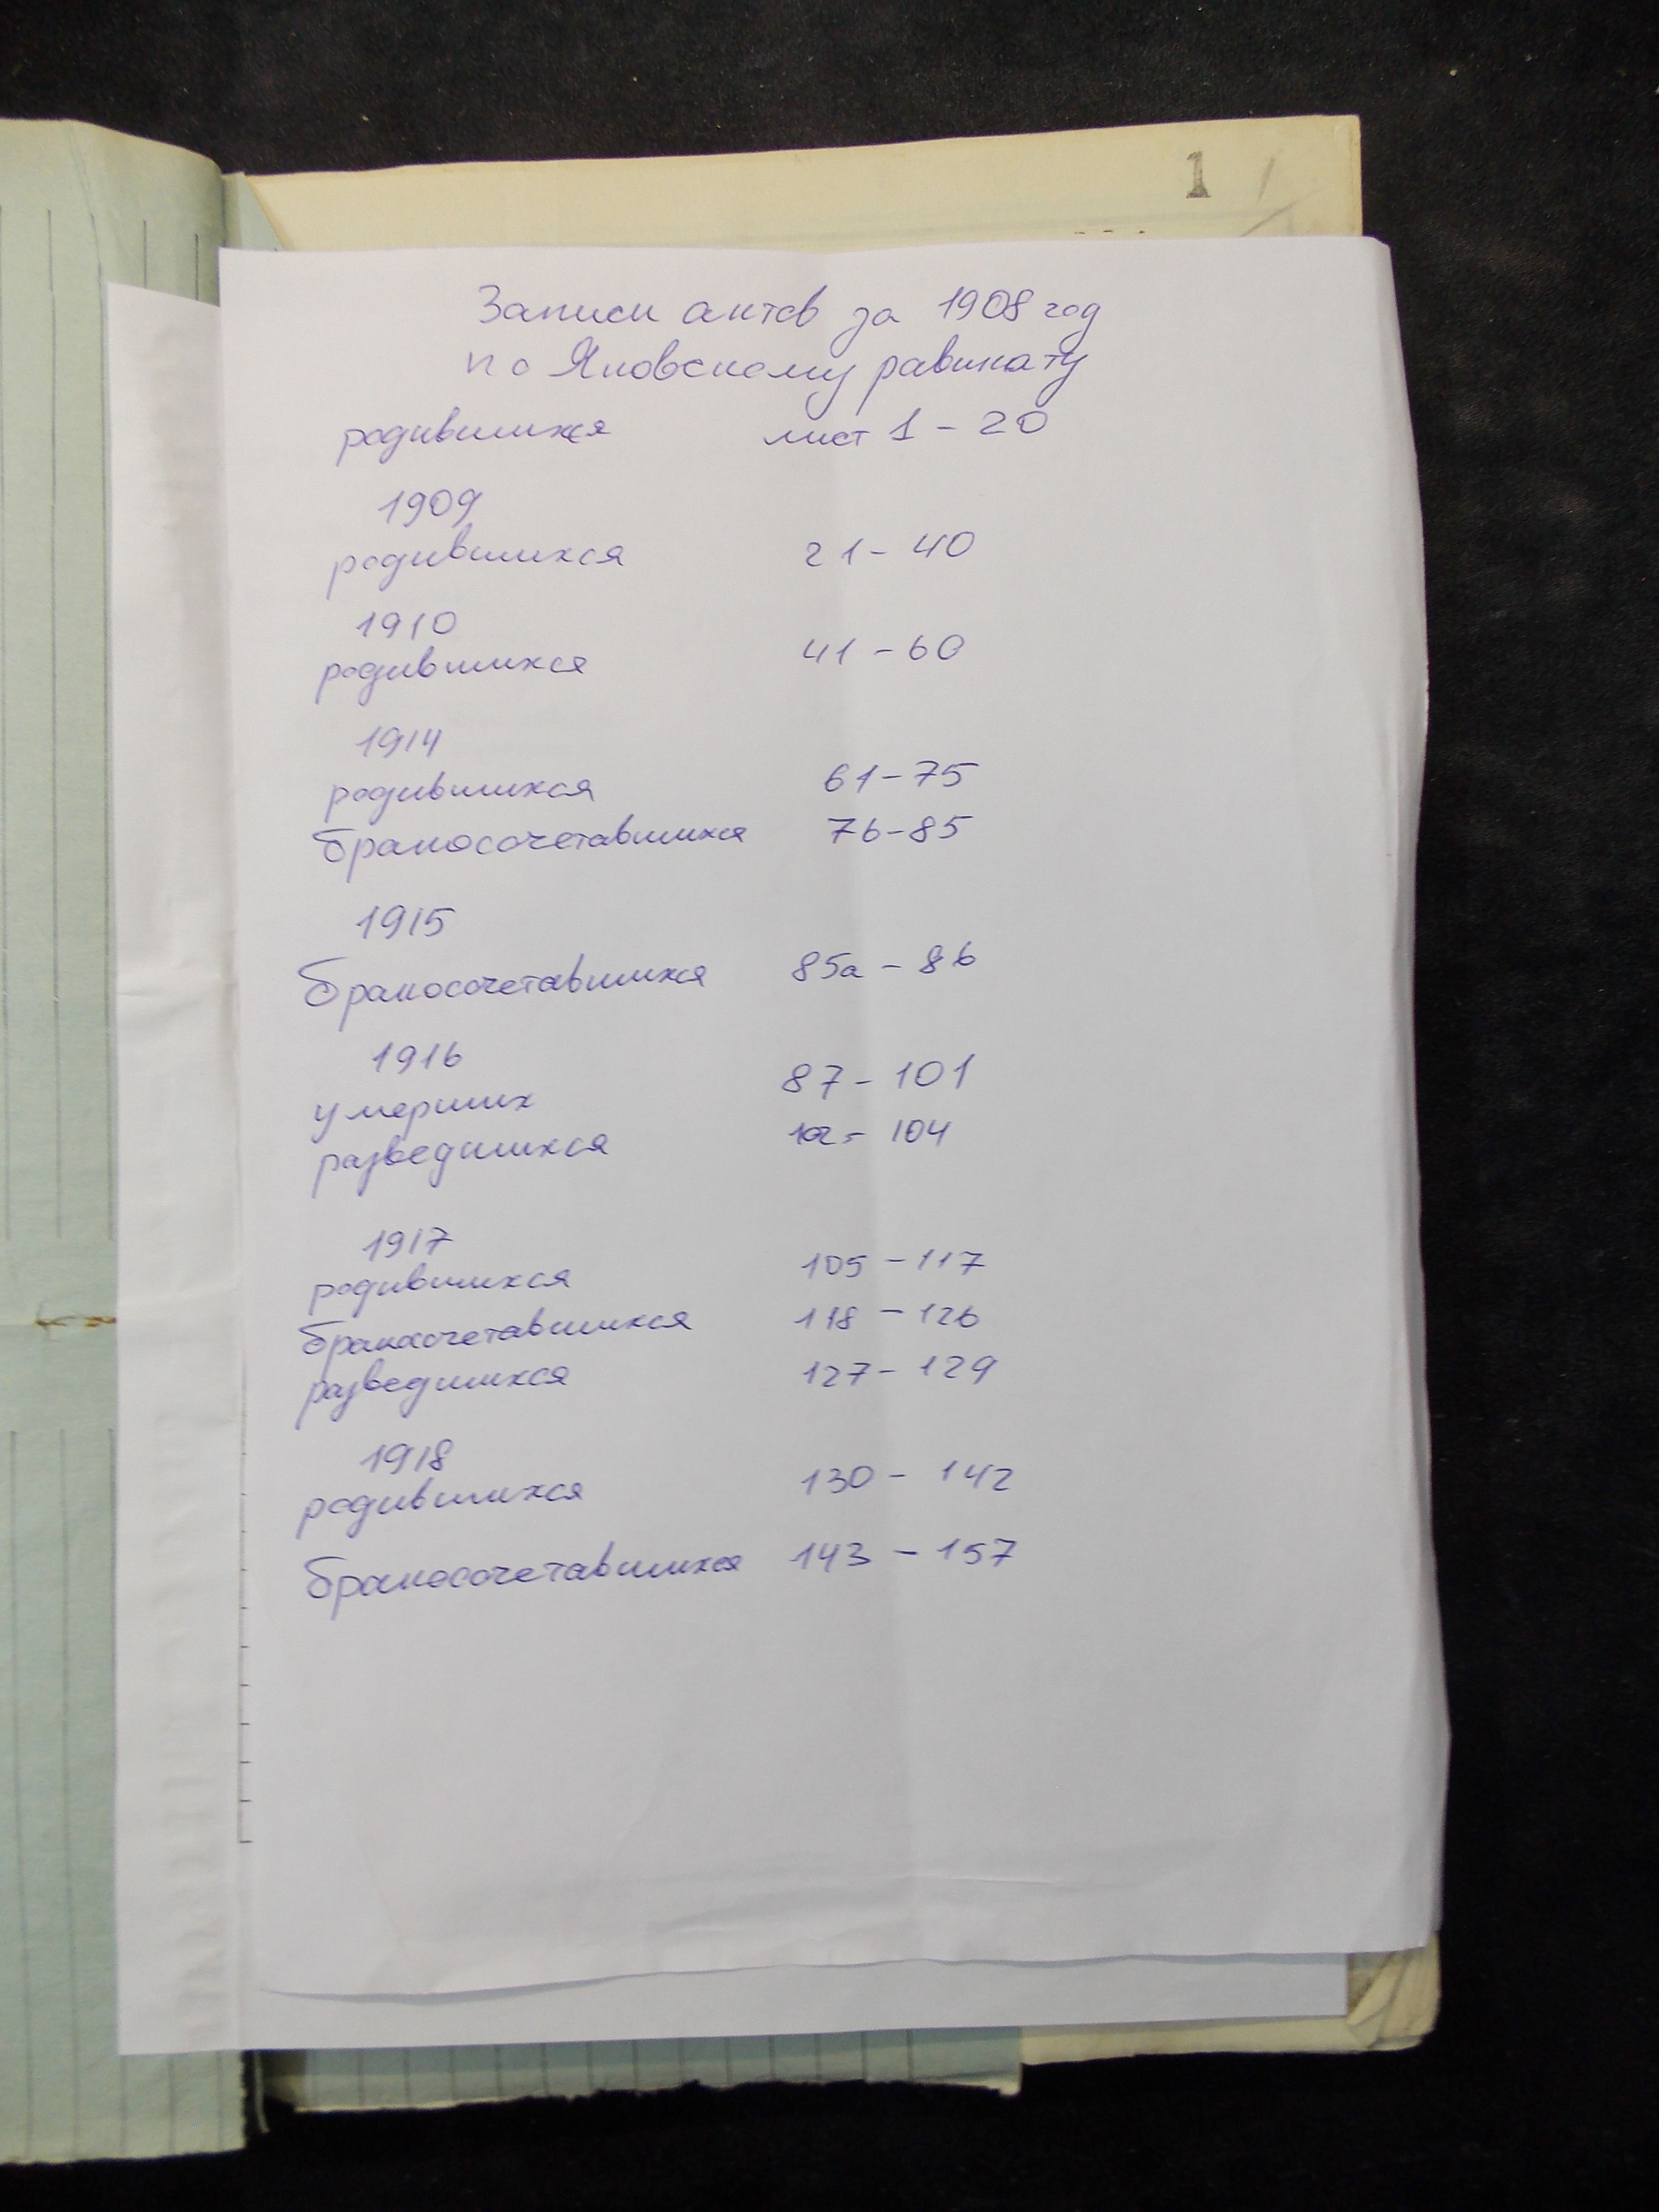 1
Записи актов за 1908 год
по Яновскому равинату
родившихся лист 1 - 20
1909
родившихся 21 - 40
1910
родившихся 41 - 60
1914
родившихся 61 - 75
бракосочетавшихся 76 - 85
1915
бракосочетавшихся 85а - 86
1916
умерших 87 - 101
разведшихся 102 - 104
1917
родившихся 105 - 117
бракосочетавшихся 118 - 126
разведшихся 127 - 129
1918
родившихся 130 - 142
бракосочетавшихся 143 - 157